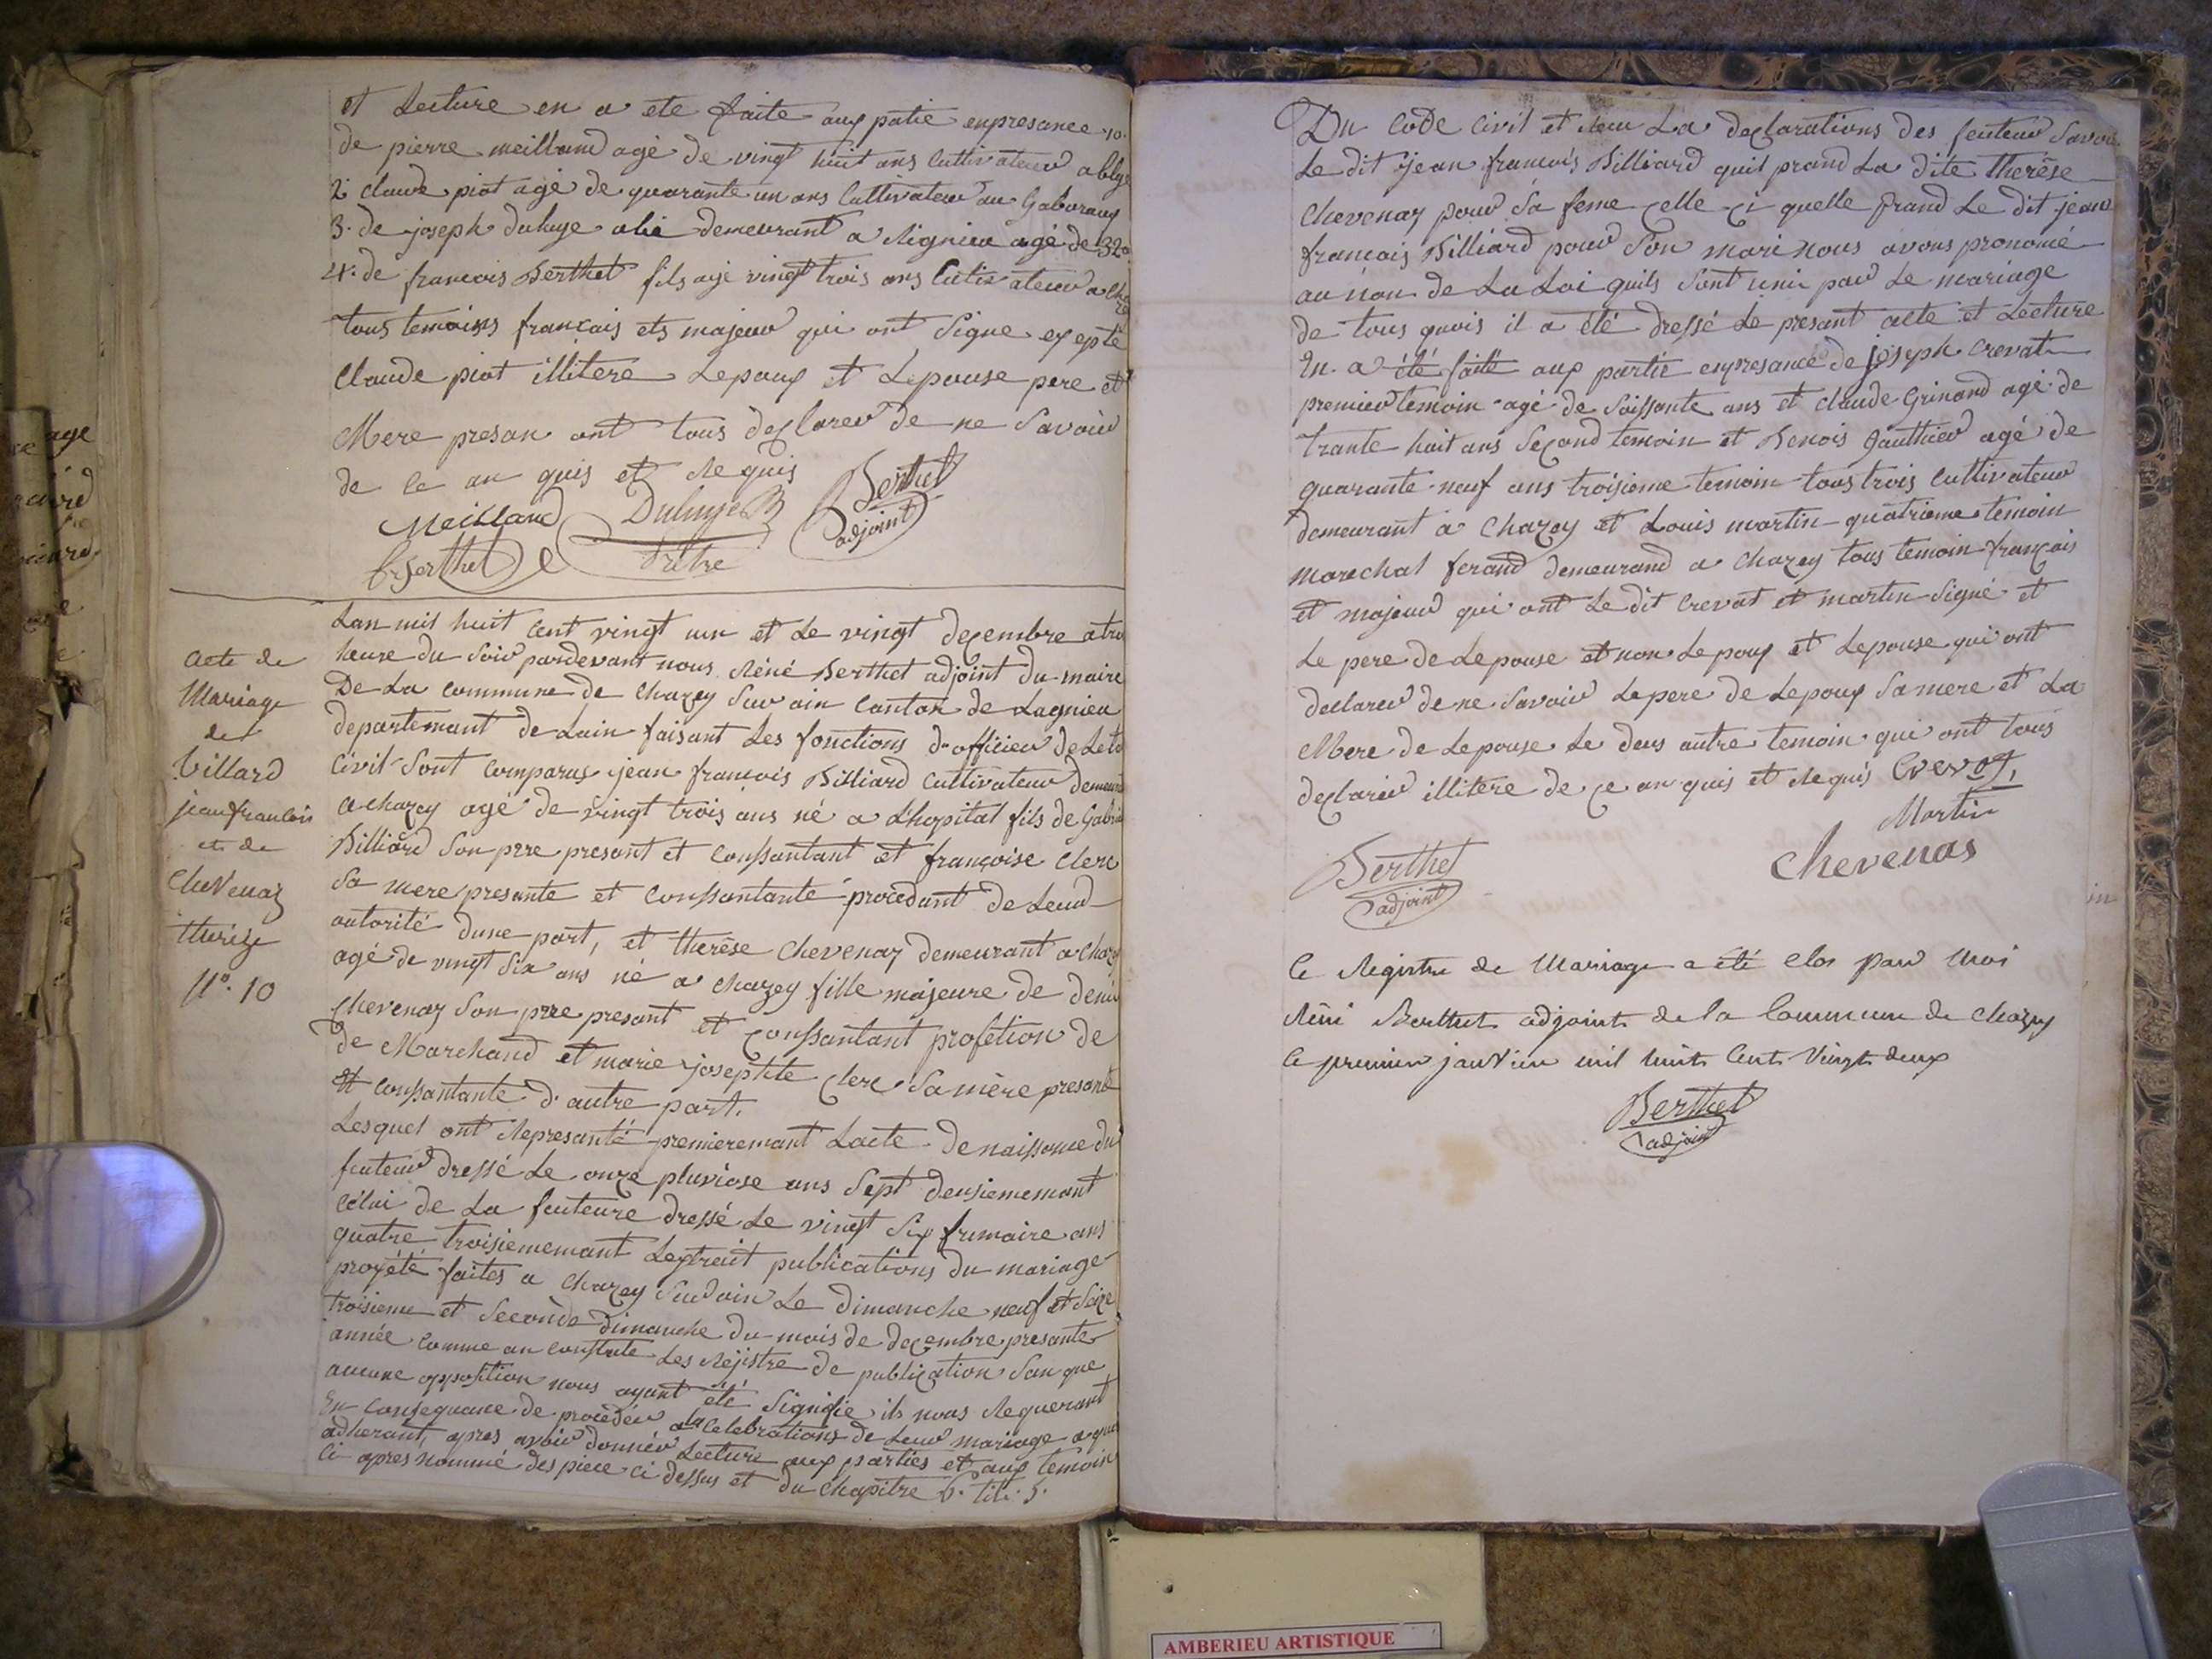 et Lecture en a ete faite aux patie enpresance 1o.
de pierre meilland agé de vingt huit ans Cultivateur a blye
2 claude piot agé de quarante un ans Cultivateur au Gaboraux
3. de joseph duluye alié demeurant a Lignieu agé de 32 a
4. de francois Berthet fils agé vingt trois ans Cultivateur a cha
tous temoins français ets majeur qui ont Signe exepté
Claude piot illitere Lepoux et Lepouse pere et
Mere presan ont tous declarer de ne Savoir
de ce an quis et Requis
Meilland Duluye Berthet
adjoint
Berthet
Lan mil huit Cent vingt un et Le vingt decembre a troi
heure du Soir pardevant nous Réné Berthet adjoint du maire
De La Commune de Chazey Sur ain Canton de Lagnieu
departemant de Lain faisant Les fonctions d'officier de Leta
Civil Sont Comparus jean francois Billiard Cultivateur demeura
a chazey agé de vingt trois ans né a Lhopital fils de Gabrie
Billiard Son pere presant et Conssantant et françoise Clerc
Sa mere presente et Conssantante procedant de Leur
autorité dune part, et therèse Chevenay demeurant a Chazey
agé de vingt Six ans né a chazey fille majeure de denis
Chevenay Son pere presant et Conssantant profetion de
de Marchand et marie josephte Clerc Sa mère presante
et Conssantante d'autre part.
Lesquel ont Represanté premieremant Lacte de naissance du
feuteur dressé Le onze pluviose ans Sept deusiememant
Célui de La feuteure dressé Le vingt Six frimaire ans
quatre troisiememant Lextrait publications du mariage
proyété faites a Chazey Sur ain Le dimanche neuf et Seize
troisieme et Seconde Dimanche du mois de decembre presante
année Comme an Constate Les Rejistre de publication San que
aucune opposition nous ayant été Signifie ils nous Requerant
En Consequance de proceder a la Celebrations de Leur mariage a quoi
adherant apres avoir donner Lecture aux parties et aux temoin
Ci apres nommé des piece ci dessus et du Chapitre 6. tit. 5.
acte de
Mariage
de
billard
jean francois
et de
Chevenaz
thérèze
N°. 10
Du Code Civil et Recu La declarations des feuteur Savoir
Le dit jean francois Billiard quil prand La dite therèse
Chevenay pour Sa feme celle ci quelle prand Le dit jean
francois Billiard pour Son mari nous avons prononcé
au non de La Loi quils Sont unir par Le mariage
de tous quois il a été dressé Le presant acte et Lecture
En a été faite aux partie enpresance de joseph Crevat
premier temoin agé de Soissante ans et claude Grinand agé de
trante huit ans Second temoin et Benois Gauthier agé de
quarante neuf ans troisieme temoin tous trois Cultivateur
demeurant a Chazey et Louis martin quatrieme temoin
marechal ferand demeurand a Chazey tous temoin français
et majeur qui ont Le dit Crevat et martin Signé et
Le pere de Lepouse et non Lepoux et Lepouse qui ont
declarer de ne Savoir Lepere de Lepoux Sa mere et La
Mere de Lepouse Le deus autre temoin qui ont tous
declarer illitere de ce an quis et Requis Crevat,
Martin
Chevenas
Berthet
adjoint
Ce Registre de Mariage a été Clos par Moi
Réné Berthet adjoint de la Commune de Chazey
le premier janvier mil huit Cent Vingt deux
Berthet
adjoint
AMBERIEU ARTISTIQUE